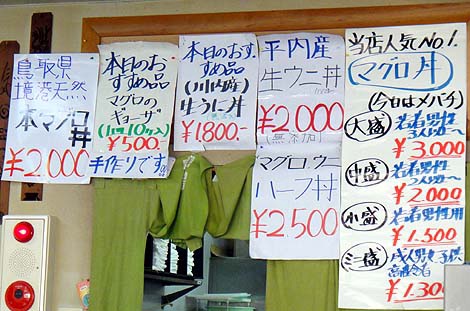 鳥取県
境港天然
本マグロ
丼
¥2.000
本日のおす
すめ品
マグロの
ギョーザ
¥500.
手作りです。
本日のおすすめ品
(川内産)
生うに丼
¥1800-
平内産
生ウニ丼
¥2000
無添加
マグロ、ウニ
ハーフ丼
¥2500
当店人気No.1
マグロ丼
(今日はメバチ)
大盛
若者男性
3人前〜
¥3.000
中盛
若者男性
¥2.000
小盛
若者男性用
¥1.500
ミニ盛
成人男女子供
高齢者
¥1.300